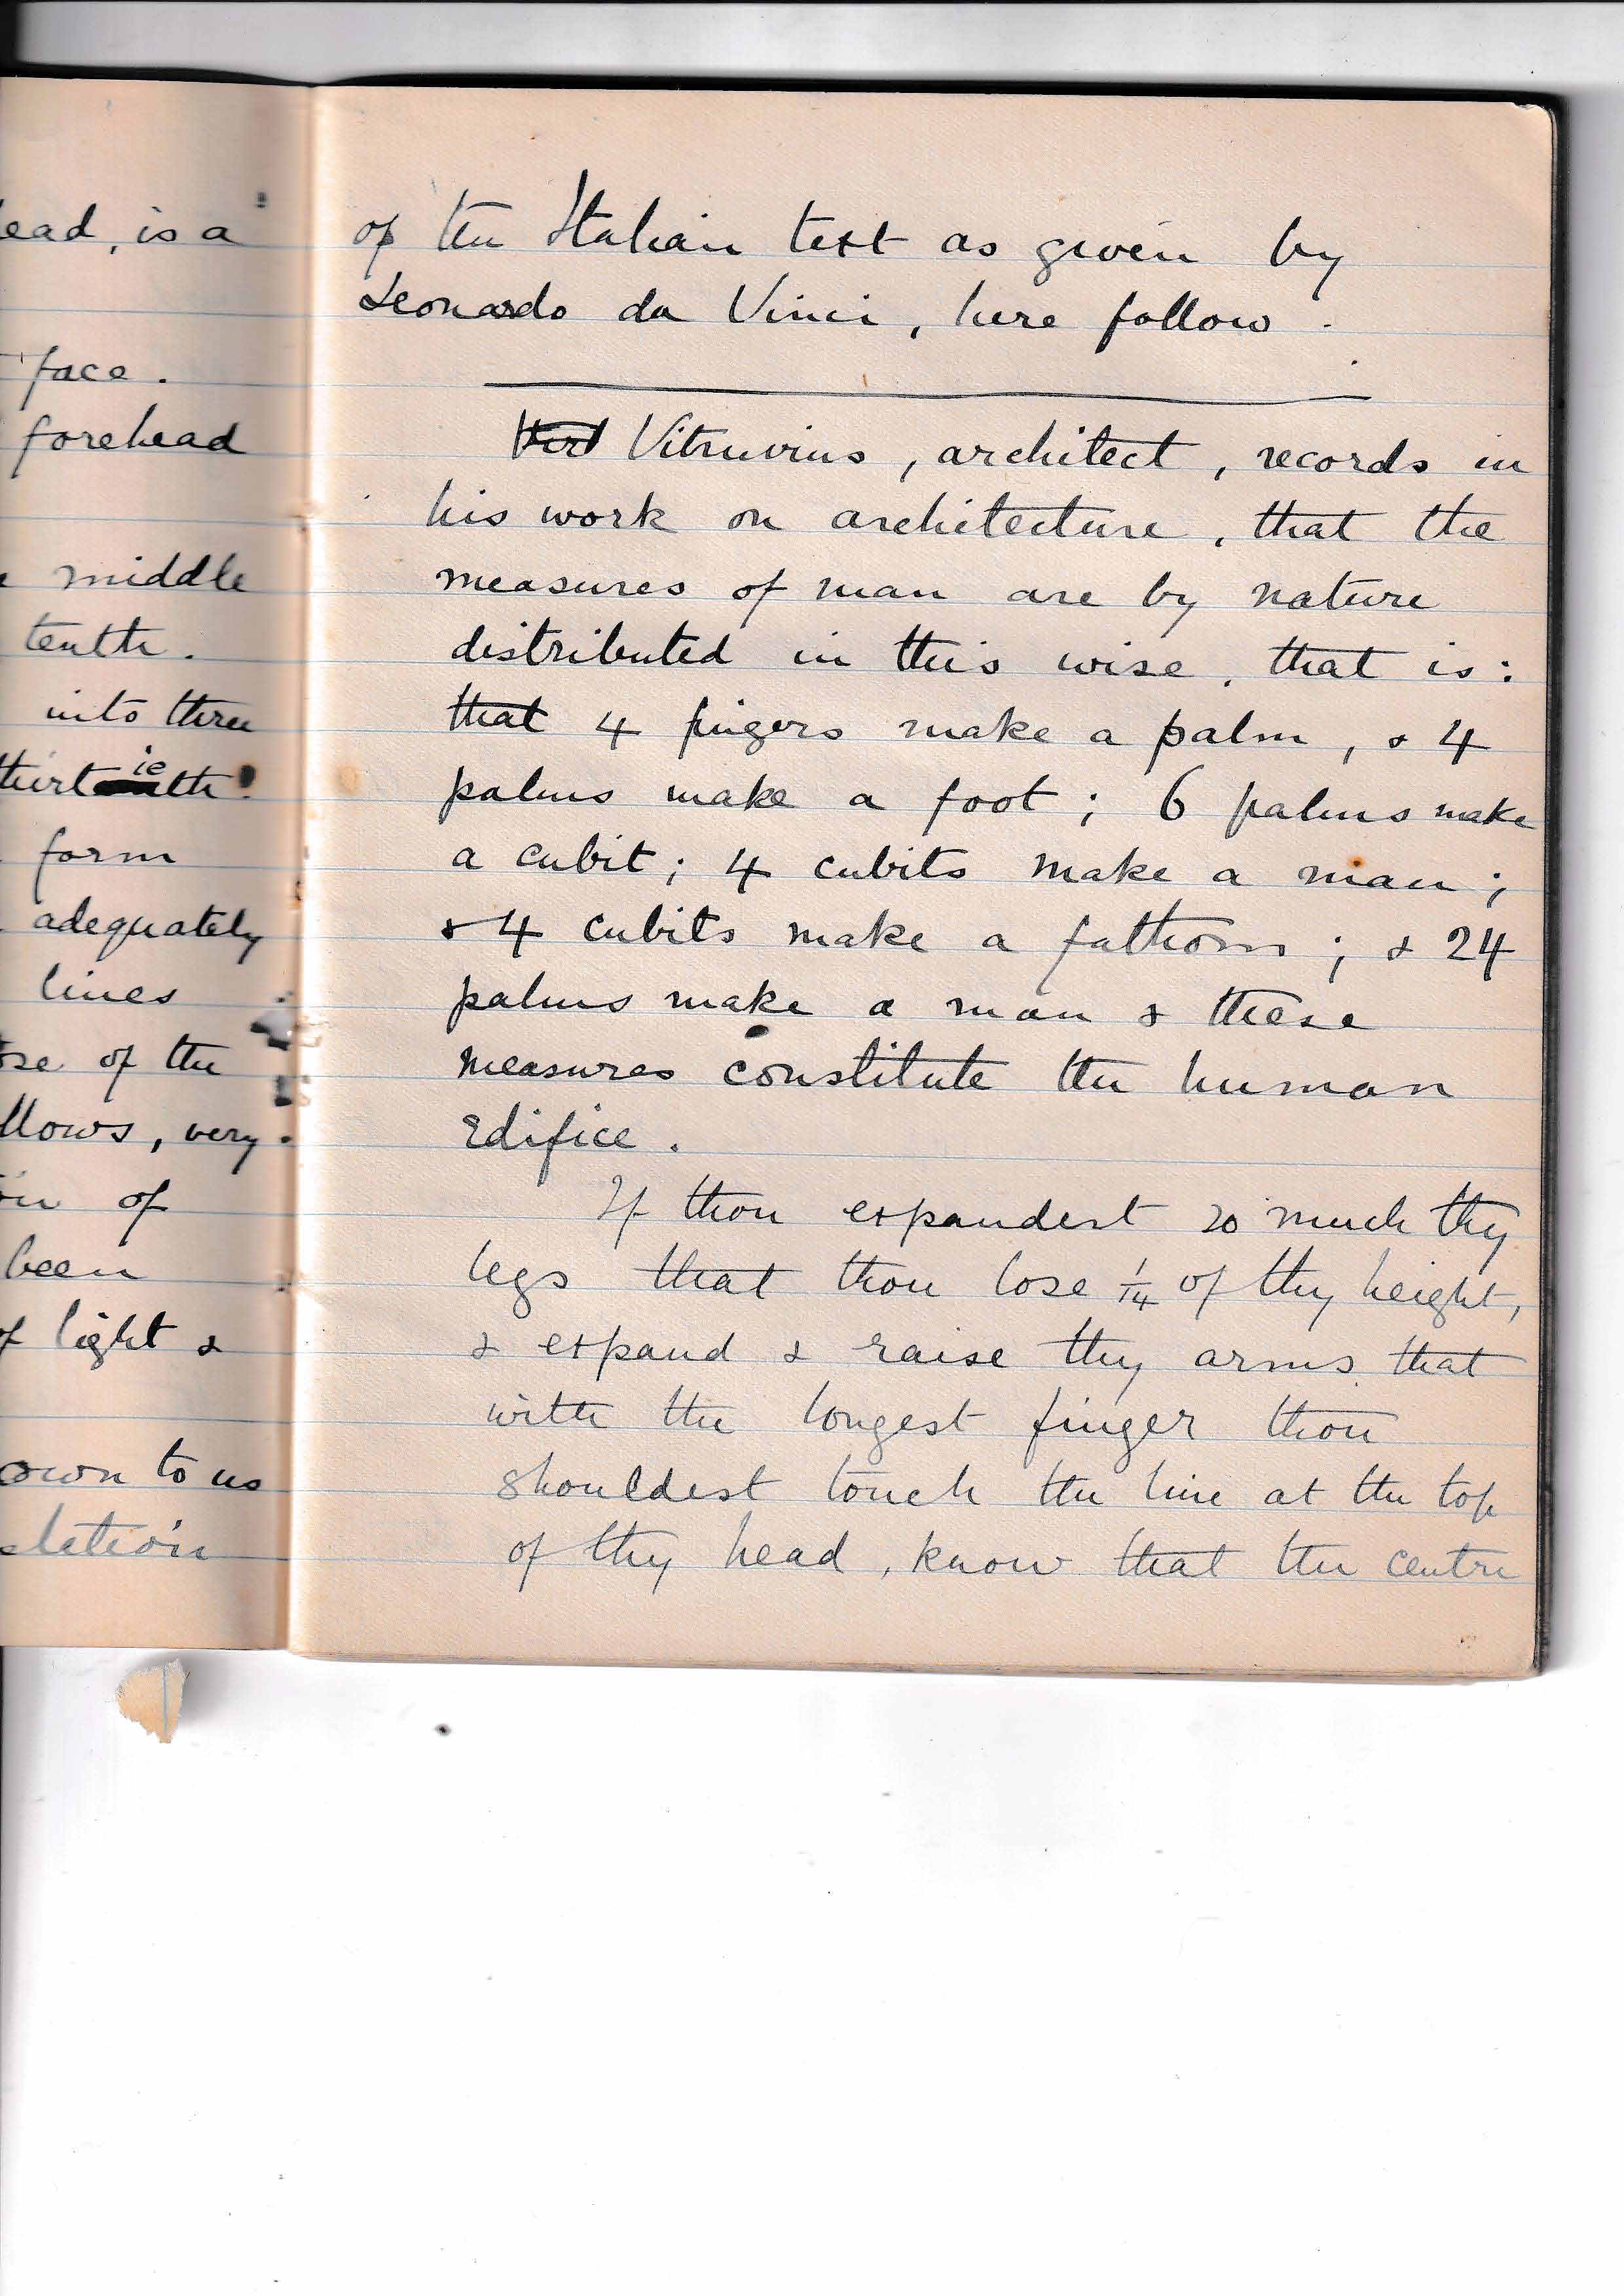 ead, is a
face.
forehead
middle
tenth.
into three
thirtieth.
form
adequately
lines
se of the
llows, very
of
been
of light &
own to us
of the Italian text as given by
Leonardo da Vinci, here follow.
Vitruvius, architect, records in
his work on architecture, that the
measures of man are by nature
distributed in this wise, that is:
that 4 fingers make a palm, & 4
palms make a foot; 6 palms make
a cubit; 4 cubits make a man;
& 4 cubits make a fathom; & 24
palms make a man & these
measures constitute the human
edifice.
If thou expandest so much thy
legs that thou lose 1/14 of thy height,
& expand & raise thy arms that
with the longest finger thou
shouldest touch the line at the top
of thy head, know that the centre